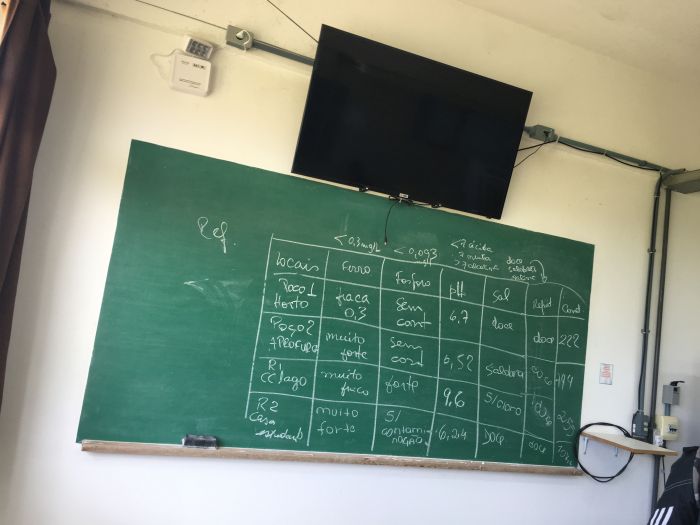 Ref.
< 0,3 mg/L < 0,093 mg/L < 7 ácida
7 neutra doce
> 7 alcalina salobra
Locais Ferro Fósforo pH Sal Cond
Poço 1 Horto fraca 0,3 sem cont 6,7 doce doce 222
Poço 2 muito forte sem cont 6,52 salobra
R1 CC lago muito fraco forte 9,6 s/cloro
R2 Casa estudante muito forte s/ contaminação 6,24 Doce doce